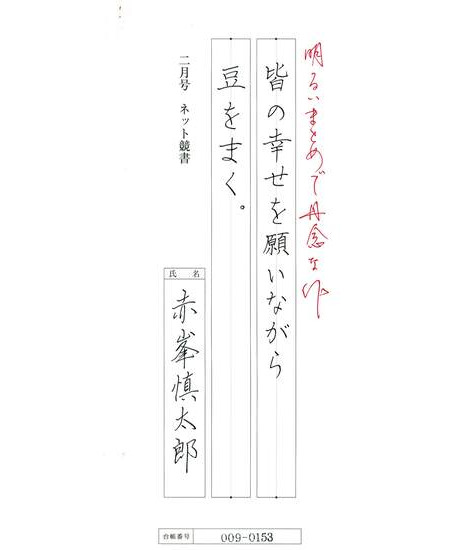 明るいまとめで丹念な作
皆の幸せを願いながら
豆をまく。
二月号 ネット競書
氏 名
赤峯慎太郎
台帳番号
009-0153